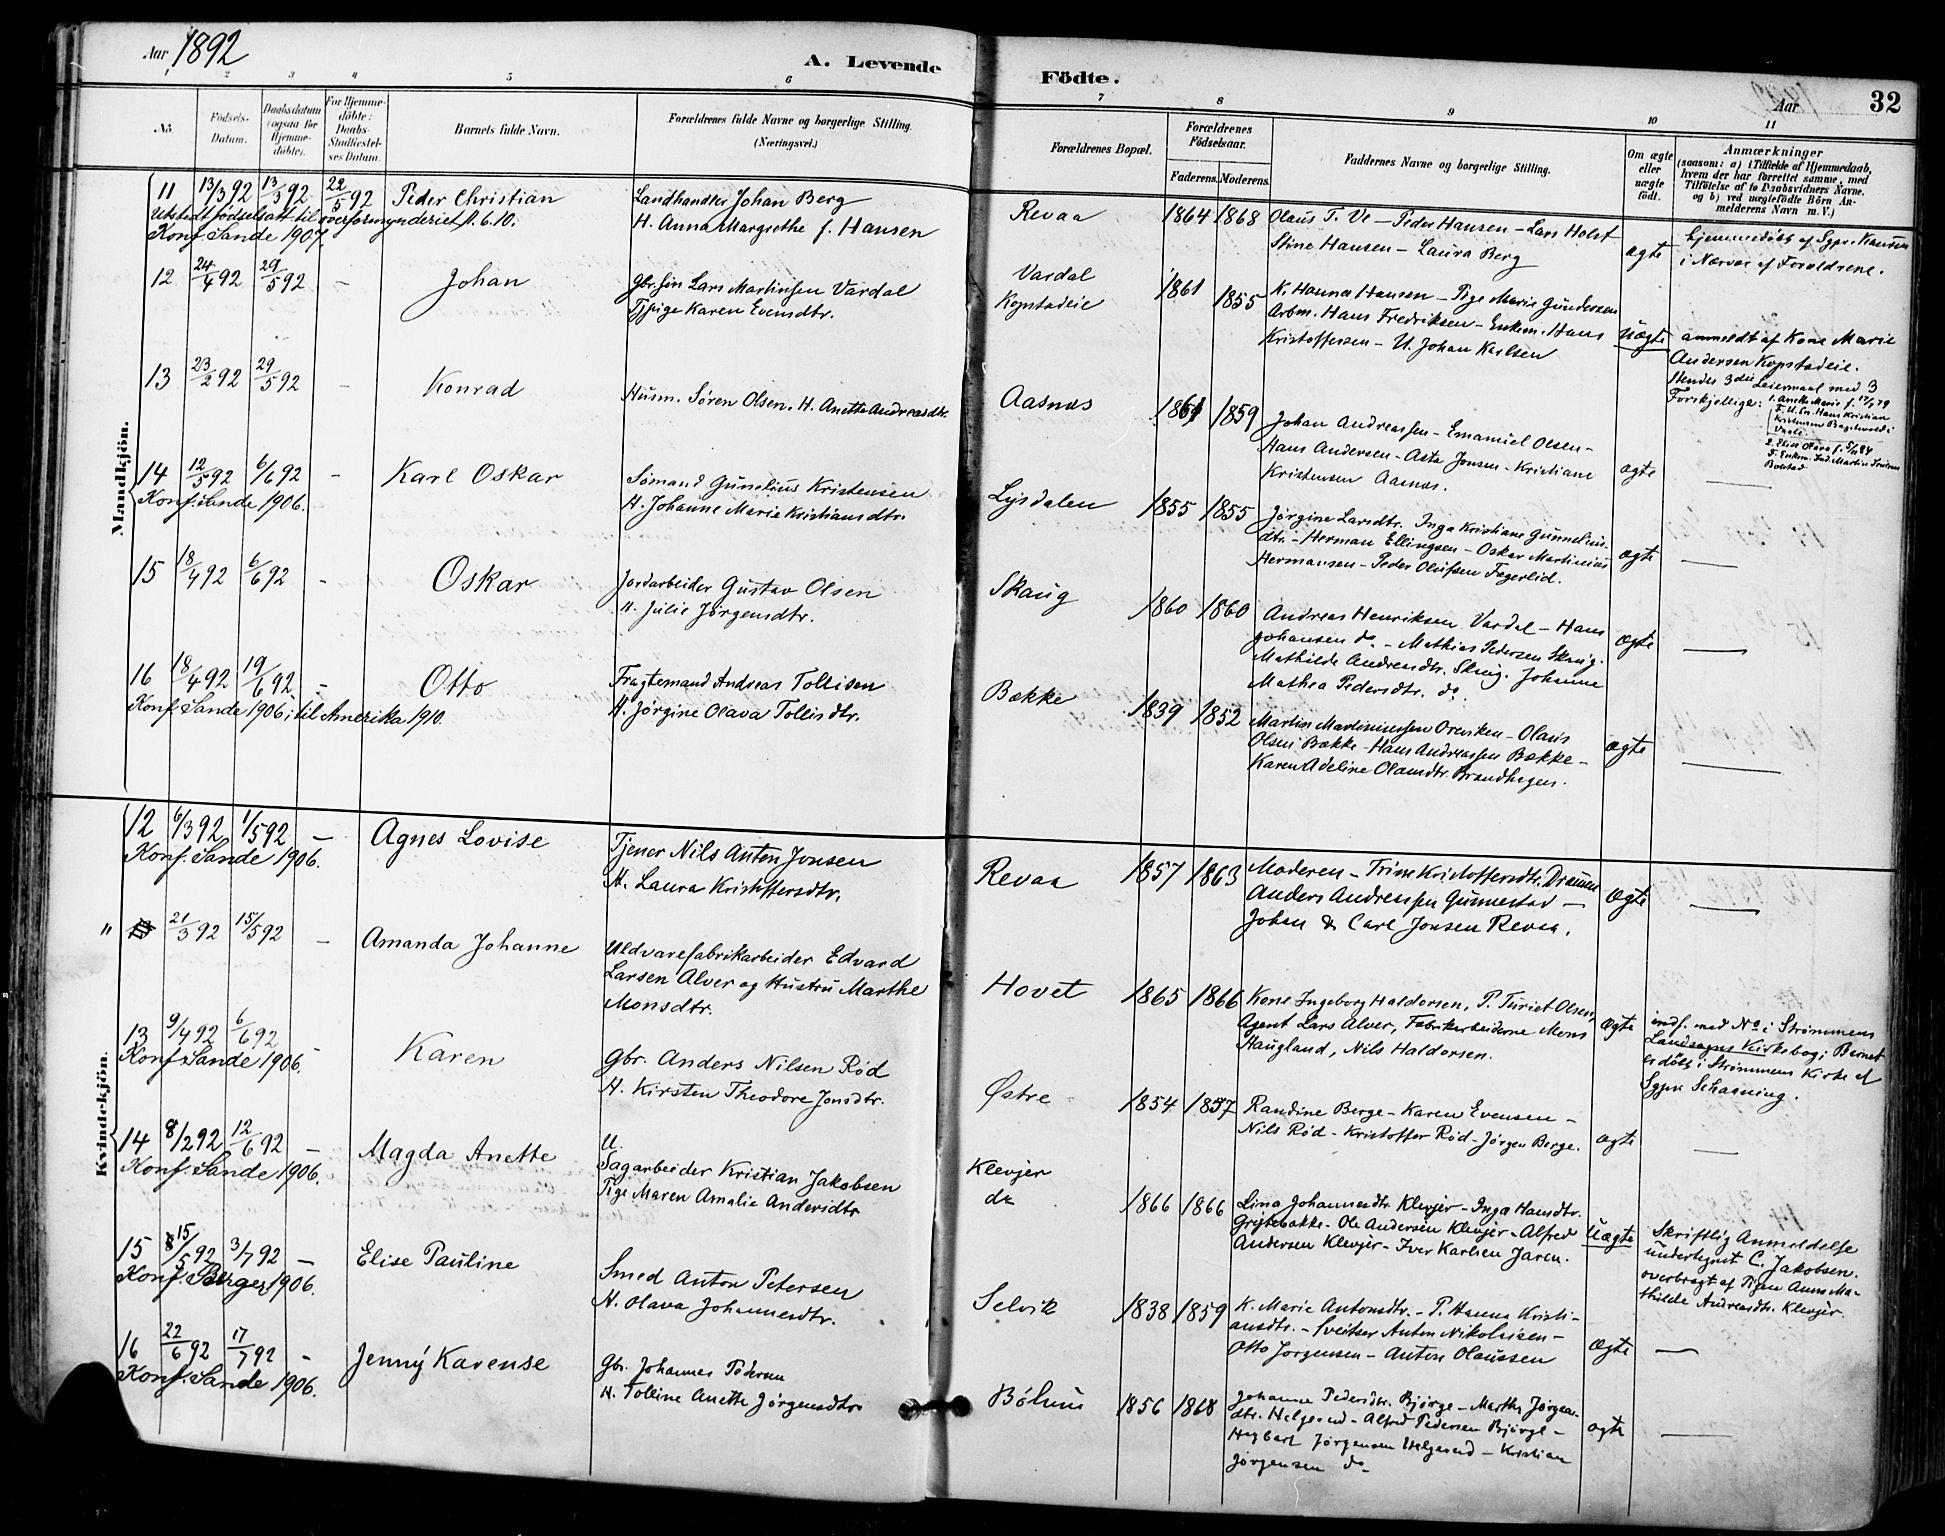 Aar 1892
A. Levende
Födte.
Aar
32
1 2 3 4 5 6
7 8 9 10 11
No.
Födsels-Datum.
Daabsdatum (ogsaa for Hjemmedöbte).
For Hjemmedöbte: Daabs-Stadfæstelses Datum.
Barnets fulde Navn.
Forældrenes fulde Navne og borgerlige Stilling.
(Næringsvei.)
Forældrenes Bopæl.
Forældrenes Födselsaar.
Faderens. Moderens.
Faddernes Navne og borgerlige Stilling.
Om ægte eller uægte födt.
Anmærkninger
(saasom: a) i Tilfælde af Hjemmedaab, hvem der har forrettet samme, med Tilföielse af to Daabsvidners Navne, og b) ved uægtefödte Börn Anmelderens Navn m. V.)
Mandkjön.
11 13/3 92 13/3 92 22/5 92 Peder Christian
Landhandler Johan Berg
H. Anna Margrethe f. Hansen
Utstedt fødselsatt til overformynderiet 11.6.10.
Konf. Sande 1907.
Revaa 1864 1868
Olaus T. Ve – Peder Hansen – Lars Holst
Stine Hansen – Laura Berg
ægte
hjemmedøbt af Sgpr.
i Nærvær af Forældrene.
12 24/4 92 29/5 92 – Johan
Gbr.søn Lars Martinsen Vardal
Tjpige Karen Evensdtr.
Vardal
Kopstadeie
1861 1855
K. Hanna Hansen – Pige Maria Gundersen
Arbm. Hans Fredriksen – Enkem. Hans
Kristoffersen – U. Johan Karlsen
Uægte
anmeldt af Kone Marie
Andersen Kopstadeie.
Hendes 3die Leiermaal med 3
Forskjellige:
1. Anette Marie f.
F. U. Hans Kristian
Kristensen
2. Elise Olava f.
F. Enkem. Ind. Martin
Bolstad
13 23/2 92 29/5 92 – Konrad
Husm. Søren Olsen. H. Anette Andreasdtr.
Aasnæs 1859
Johan Andreassen – Emanuel Olsen –
Hans Andersen – Asta Jonsen – Kristiane
Kristensen Aasnæs.
ægte
14 12/5 92 6/6 92 – Karl Oskar
Sømand Gunelius Kristensen
H. Johanne Marie Kristiansdtr.
Konf. Sande 1906.
Lysdalen 1855 1855
Jørgine Larsdtr. Inga Kristiane Gunnelius-
dtr. – Herman Ellingsen – Oskar Martinius
Hermansen – Peder Olufsen Fagerlid.
ægte
15 18/4 92 6/6 92 – Oskar
Jordarbeider Gustav Olsen
H. Julie Jørgensdtr.
Skaug 1860 1860
Andreas Henriksen Vardal – Hans
Johansen do. – Mathias Pedersen Skaug.
Mathilde Andreasdtr. Skaug. Johanne
Mathea Pedersdtr. do.
ægte
16 18/4 92 19/6 92 – Otto
Fragtemand Andreas Tollisen
H. Jørgine Olava Tollisdtr.
Konf. Sande 1906; til Amerika 1910.
Bække 1839 1852
Martin Martiniussen Oreviken – Olaus
Olsen Bække – Hans Andreassen Bække –
Karen Adeline Olausdtr. Brandhagen.
ægte
Kvindekjön.
12 6/3 92 1/5 92 – Agnes Lovise
Tjener Nils Anton Jonsen
H. Laura Kristoffersdtr.
Konf. Sande 1906.
Revaa 1857 1863
Moderen – Trine Kristoffersdtr. Drammen
Anders Andreassen Gunnestad –
Johan & Carl Jonsen Revaa.
Ægte
" 21/3 92 15/5 92 – Amanda Johanne
Uldvarefabrikarbeider Edvard
Larsen Alver og Hustru Marthe
Monsdtr.
Hovet 1865 1866
Kone Ingeborg Haldorsen, P. Turiet Olsen,
Agent Lars Alver, Fabrikarbeiderne Mons
Haugland, Nils Haldorsen.
Ægte
indf. med No i Strømmens
Landsogns Kirkebog; Barnet
er døbt i Strømmens Kirke af
Sgpr. Schaaning.
13 9/4 92 6/6 92 – Karen
Gbr. Anders Nilsen Rød
H. Kirsten Theodore Jonsdtr.
Konf. Sande 1906.
Østre 1854 1857
Randine Berge – Karen Evensen –
Nils Rød – Kristoffer Rød – Jørgen Berge.
ægte
14 8/2 92 12/6 92 – Magda Anette
U.
Sagarbeider Kristian Jakobsen
Pige Maren Amalie Andersdtr
Konf. Sande 1906.
Klevjer
do
1866 1866
Lina Johannesdtr. Klevjer – Inga Hansdtr.
Grytebakke – Ole Andersen Klevjer – Alfred
Andersen Klevjer – Iver Karlsen Jaren.
Uægte
Skriftlig Anmeldelse
undertegnet C. Jakobsen.
overbragt af Pigen Anna Ma-
thilde Andreasdtr. Klevjer.
15 15/5 92 3/7 92 – Elise Pauline
Smed Anton Petersen
H. Olava Johannesdtr.
Konf. Berger 1906.
Selvik 1838 1859
K. Marie Antonsdtr. – P. Hanna Kristi-
ansdtr. – Sveitser Anton Nikolaisen –
Otto Jørgensen – Anton Olaussen
Ægte
16 22/6 92 17/7 92 – Jenny Karense
Gbr. Johannes Pedersen
H. Tolline Anette Jørgensdtr.
Konf. Sande 1906.
1856 1868
Johanne Pedersdtr. Bjørge – Marthe Jørgens-
dtr. Helgerud – Alfred Pedersen Bjørge –
Hagbart Jørgensen Helgerud – Kristian
Jørgensen do
ægte